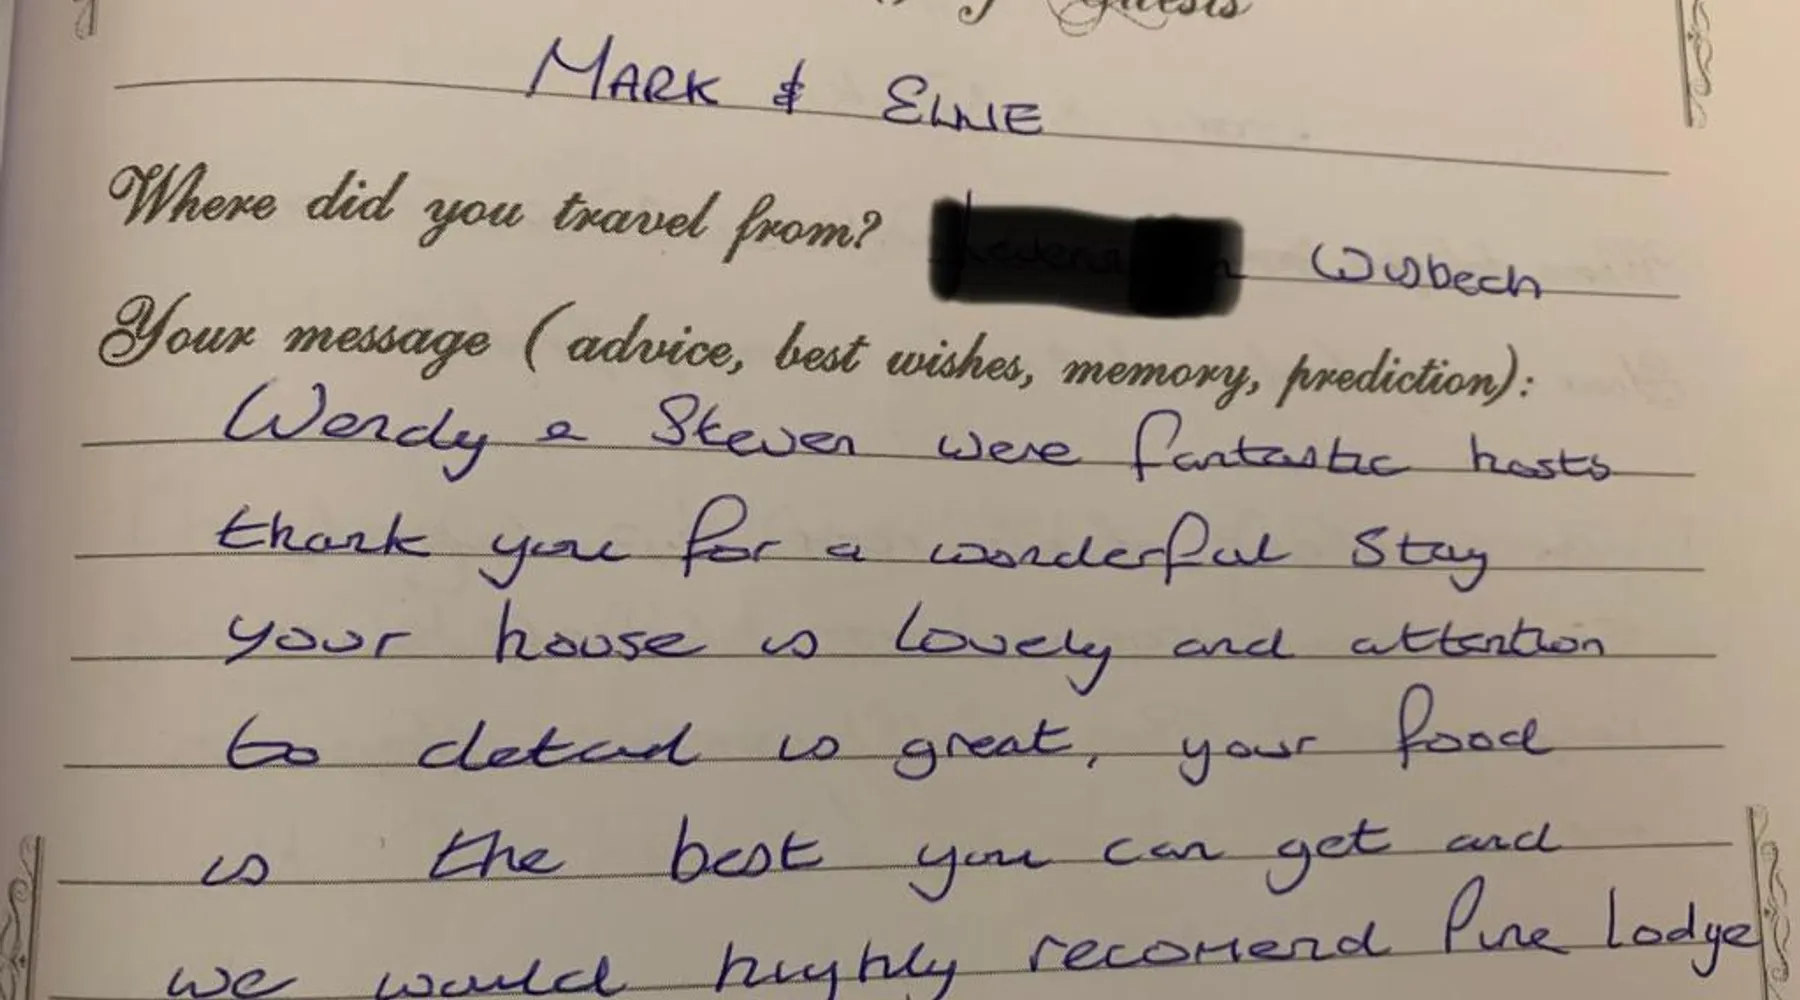 Guests
MARK & ELLIE
Where did you travel from? Wisbech
Your message (advice, best wishes, memory, prediction):
Wendy & Steven were fantastic hosts
thank you for a wonderful stay
your house is lovely and attention
to detail is great, your food
is the best you can get and
we would highly recomend Pine Lodge